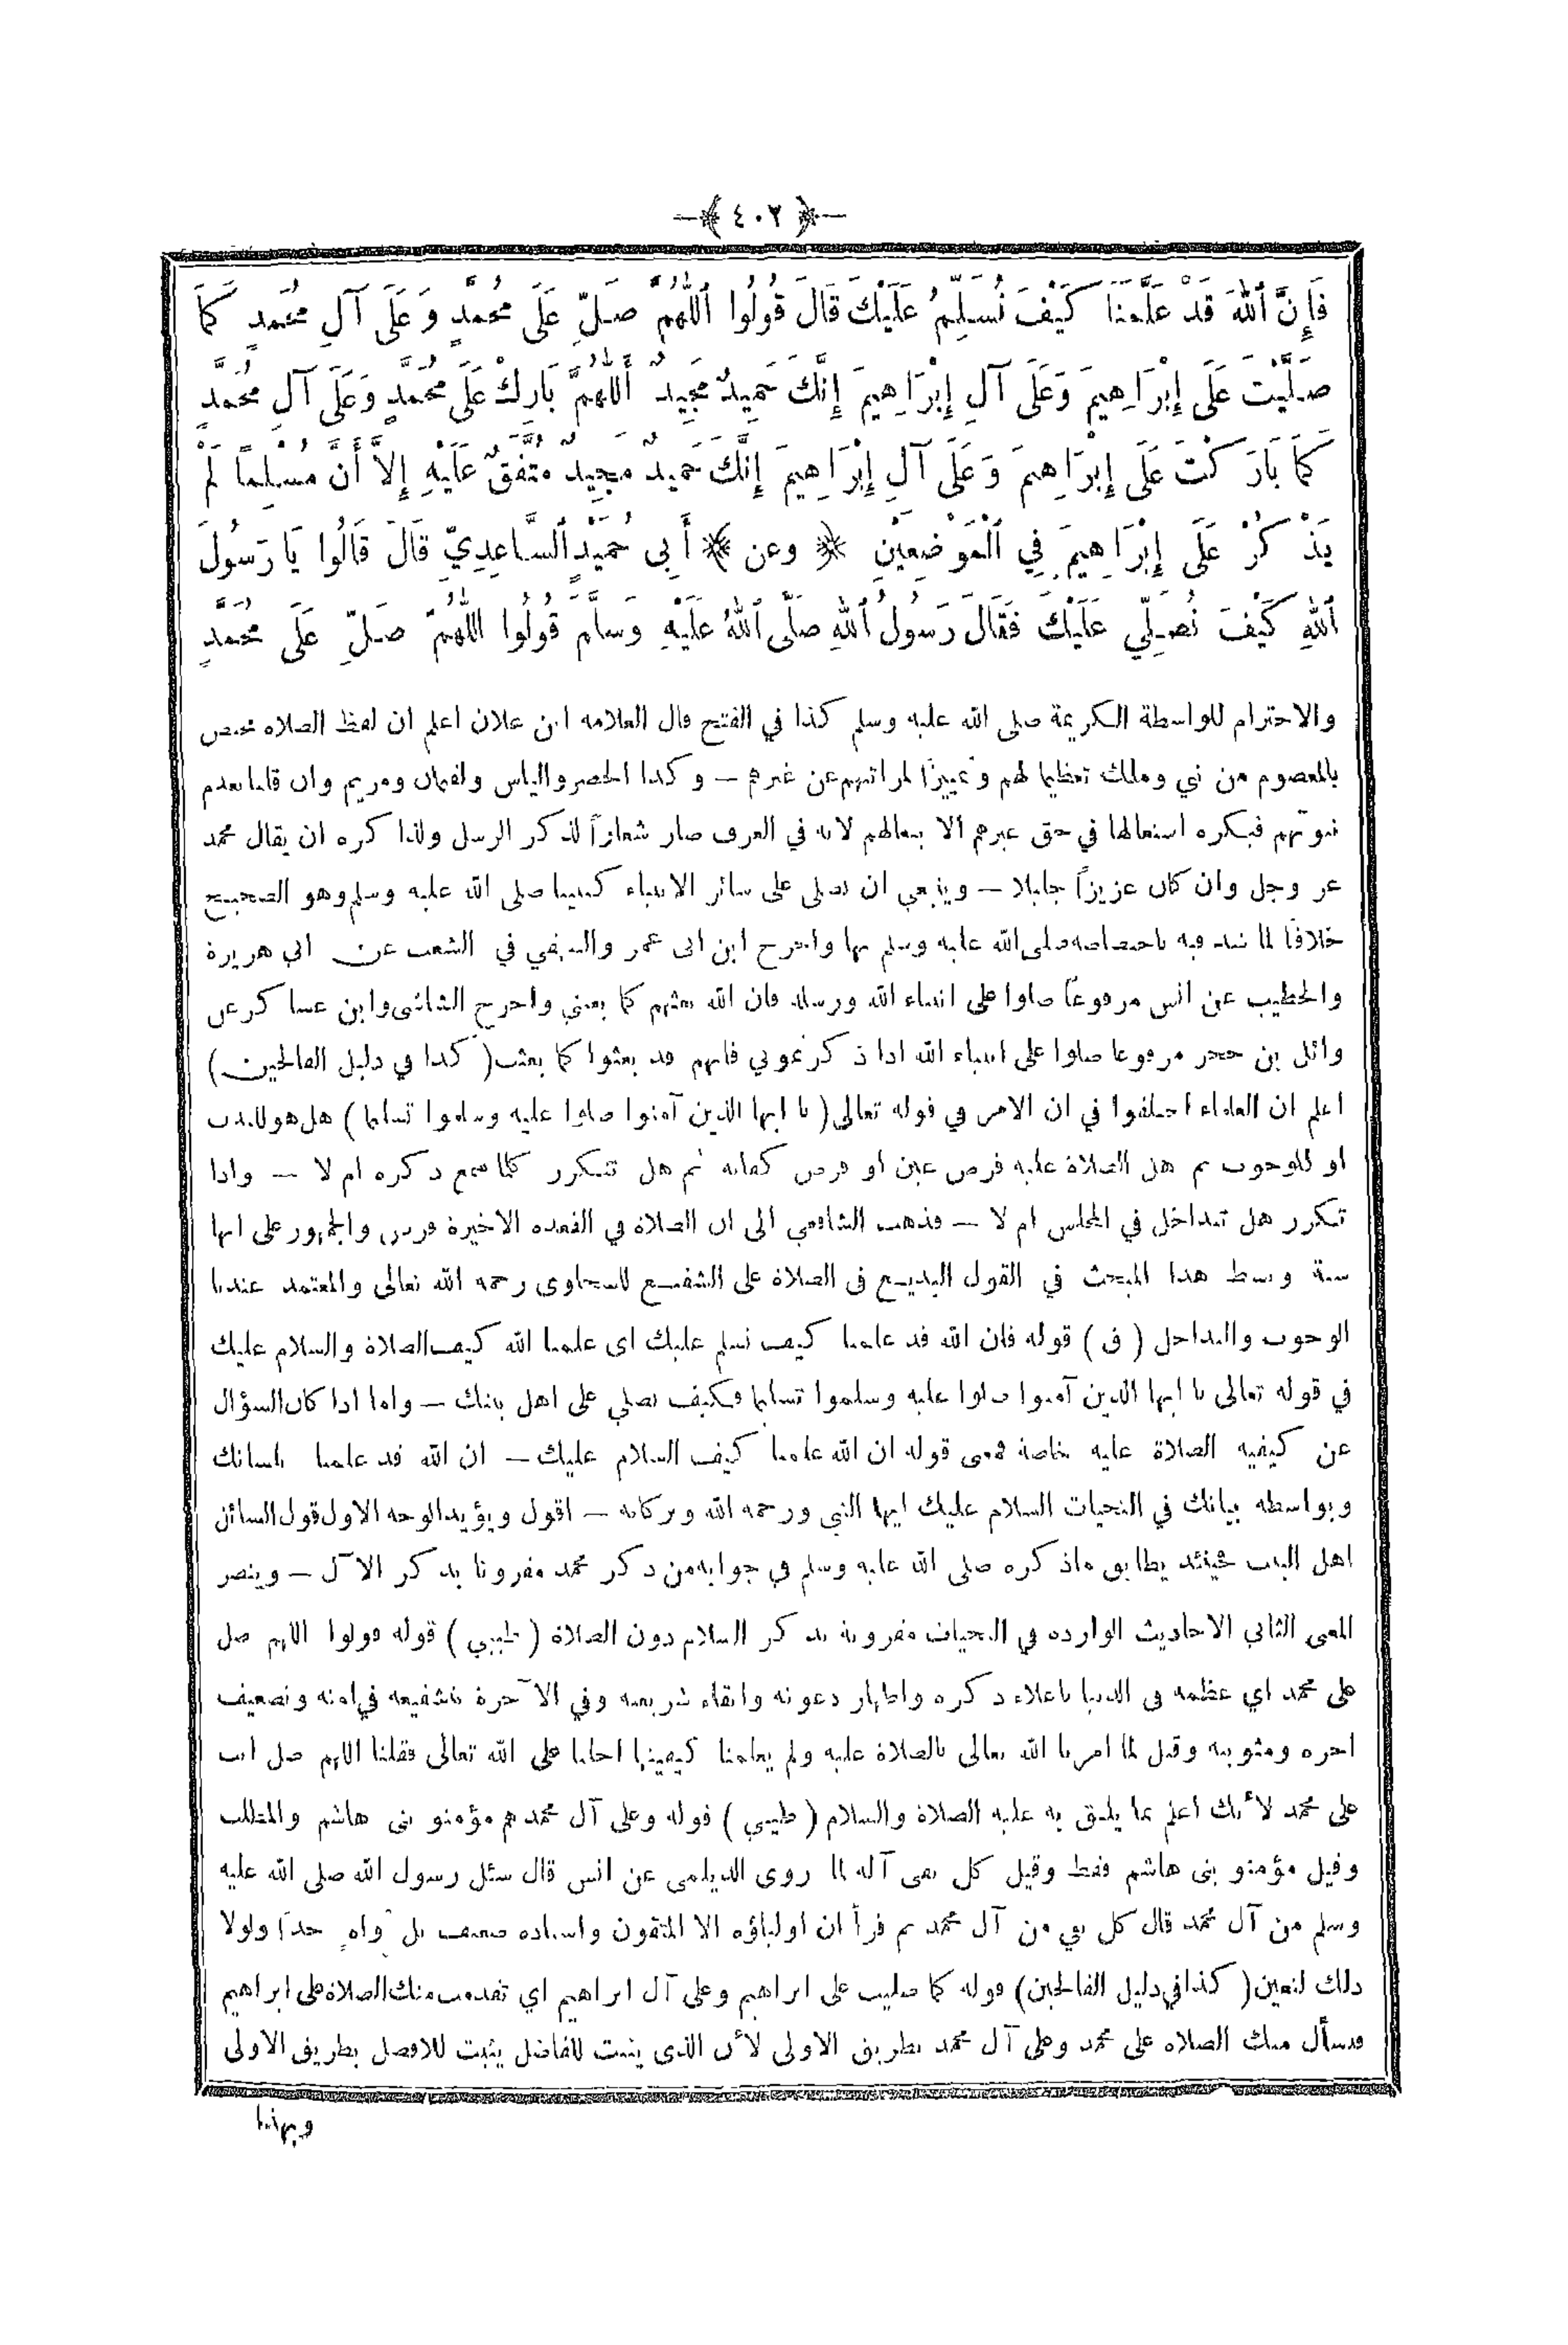 ﴿ ٤٠٢ ﴾
فَإِنَّ ٱللهَ قَدْ عَلَّمَنَا كَيْفَ نُسَلِّمُ عَلَيْكَ قَالَ قُولُوا ٱللّٰهُمَّ صَلِّ عَلَى مُحَمَّدٍ وَعَلَى آلِ مُحَمَّدٍ كَمَا
صَلَّيْتَ عَلَى إِبْرَاهِيمَ وَعَلَى آلِ إِبْرَاهِيمَ إِنَّكَ حَمِيدٌ مَجِيدٌ أَللّٰهُمَّ بَارِكْ عَلَى مُحَمَّدٍ وَعَلَى آلِ مُحَمَّدٍ
كَمَا بَارَكْتَ عَلَى إِبْرَاهِيمَ وَعَلَى آلِ إِبْرَاهِيمَ إِنَّكَ حَمِيدٌ مَجِيدٌ مُتَّفَقٌ عَلَيْهِ إِلاَّ أَنَّ مُسْلِمًا لَمْ
يَذْكُرْ عَلَى إِبْرَاهِيمَ فِي ٱلْمَوْضِعَيْنِ ﴿ وعن ﴾ أَبِي حُمَيْدٍ ٱلسَّاعِدِيِّ قَالَ قَالُوا يَا رَسُولَ
ٱللهِ كَيْفَ نُصَلِّي عَلَيْكَ فَقَالَ رَسُولُ ٱللهِ صَلَّى ٱللهُ عَلَيْهِ وَسَلَّمَ قُولُوا اللّٰهُمَّ صَلِّ عَلَى مُحَمَّدٍ
والاحترام للواسطة الكريمة صلى الله عليه وسلم كذا في الفتح قال العلامة ابن علان اعلم ان لفظ الصلاة مختص
بالمعصوم من نبي وملك تعظيما لهم وتمييزًا لمراتبهم عن غيرهم – وكذا الخضر والياس ولقمان ومريم وان قلنا بعدم
نبوتهم فيكره استعمالها في حق غيرهم الا تبعا لهم لانه في العرف صار شعارًا لذكر الرسل ولذا كره ان يقال محمد
عز وجل وان كان عزيزًا جليلا – وينبغي ان نصلي على سائر الانبياء كنبينا صلى الله عليه وسلم وهو الصحيح
خلافًا لما شذ فيه باختصاصه صلى الله عليه وسلم بها واخرج ابن ابى عمر والبيهقي في الشعب عن ابي هريرة
والخطيب عن انس مرفوعًا صلوا على انبياء الله ورسله فان الله بعثهم كما بعثني واخرج الشاشى وابن عساكر عن
وائل بن حجر مرفوعا صلوا على انبياء الله اذا ذكرتموني فانهم قد بعثوا كما بعثت ( كذا في دليل الفالحين )
اعلم ان العلماء اختلفوا في ان الامر في قوله تعالى ( يا ايها الذين آمنوا صلوا عليه وسلموا تسليما ) هل هو للندب
او للوجوب ثم هل الصلاة عليه فرض عين او فرض كفاية ثم هل تتكرر كلما سمع ذكره ام لا – واذا
تكرر هل تتداخل في المجلس ام لا – فذهب الشافعي الى ان الصلاة في القعدة الاخيرة فرض والجمهور على انها
سنة وبسط هذا المبحث في القول البديع فى الصلاة على الشفيع للسخاوى رحمه الله تعالى والمعتمد عندنا
الوجوب والتداخل ( ق ) قوله فان الله قد علمنا كيف نسلم عليك اى علمنا الله كيف الصلاة والسلام عليك
في قوله تعالى يا ايها الذين آمنوا صلوا عليه وسلموا تسليما فكيف نصلي على اهل بيتك – واما اذا كان السؤال
عن كيفيه الصلاة عليه خاصة فمعنى قوله ان الله علمنا كيف السلام عليك – ان الله قد علمنا بلسانك
وبواسطه بيانك في التحيات السلام عليك ايها النبى ورحمه الله وبركاته – اقول ويؤيد الوجه الاول قول السائل
اهل البيت فحينئذ يطابق ماذكره صلى الله عليه وسلم في جوابه من ذكر محمد مقرونا بذكر الآل – وينصر
المعنى الثاني الاحاديث الوارده في التحيات مقرونة بذكر السلام دون الصلاة ( طيبي ) قوله قولوا اللهم صل
على محمد اي عظمه في الدنيا باعلاء ذكره واظهار دعوته وابقاء شريعته وفي الآخرة بتشفيعه في امته وتضعيف
اجره ومثوبته وقيل لما امرنا الله تعالى بالصلاة عليه ولم يعلمنا كيفيتها احلنا على الله تعالى فقلنا اللهم صل انت
على محمد لأنك اعلم بما يليق به عليه الصلاة والسلام ( طيبي ) قوله وعلى آل محمد هم مؤمنو بنى هاشم والمطلب
وقيل مؤمنو بنى هاشم فقط وقيل كل تقى آله لما روى الديلمى عن انس قال سئل رسول الله صلى الله عليه
وسلم من آل محمد قال كل تقي من آل محمد ثم قرأ ان اولياؤه الا المتقون واسناده ضعيف بل واهٍ جدًا ولولا
ذلك لتعين ( كذا في دليل الفالحين ) قوله كما صليت على ابراهيم وعلى آل ابراهيم اي تقدمت منك الصلاة على ابراهيم
فنسأل منك الصلاه على محمد وعلى آل محمد بطريق الاولى لأن الذى يثبت للفاضل يثبت للافضل بطريق الاولى
وبهذا